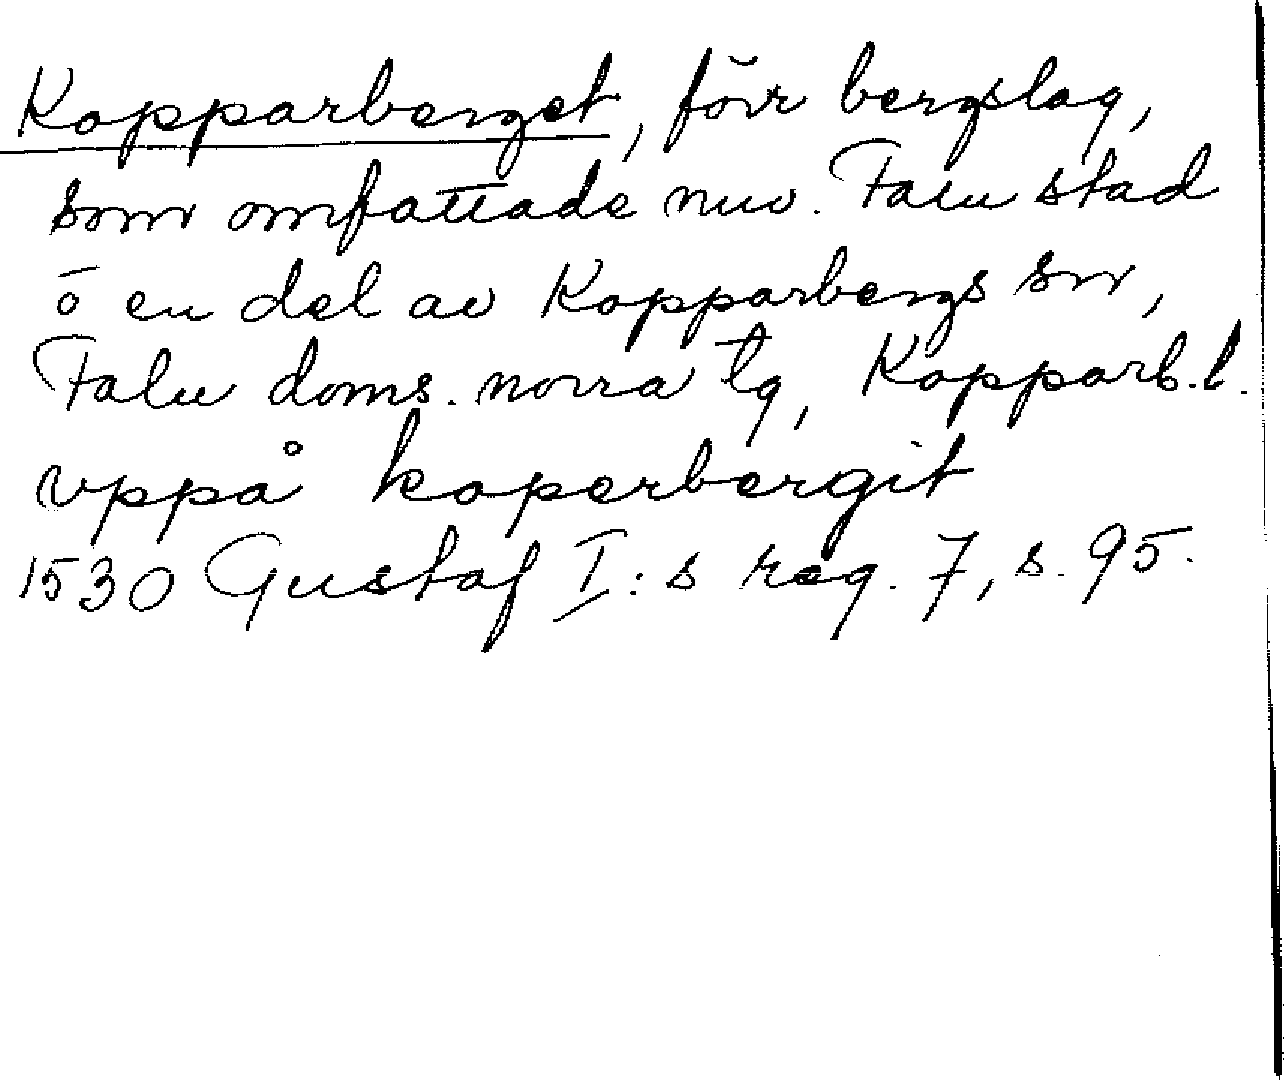 Kopparberget, förr bergslag,
som omfattade nuv. Falu stad
o en del av Kopparbergs sn,
Falu doms. norra tg, Kopparb. l.
vppå koperbergit
1530 Gustaf I:s reg. 7, s. 95.